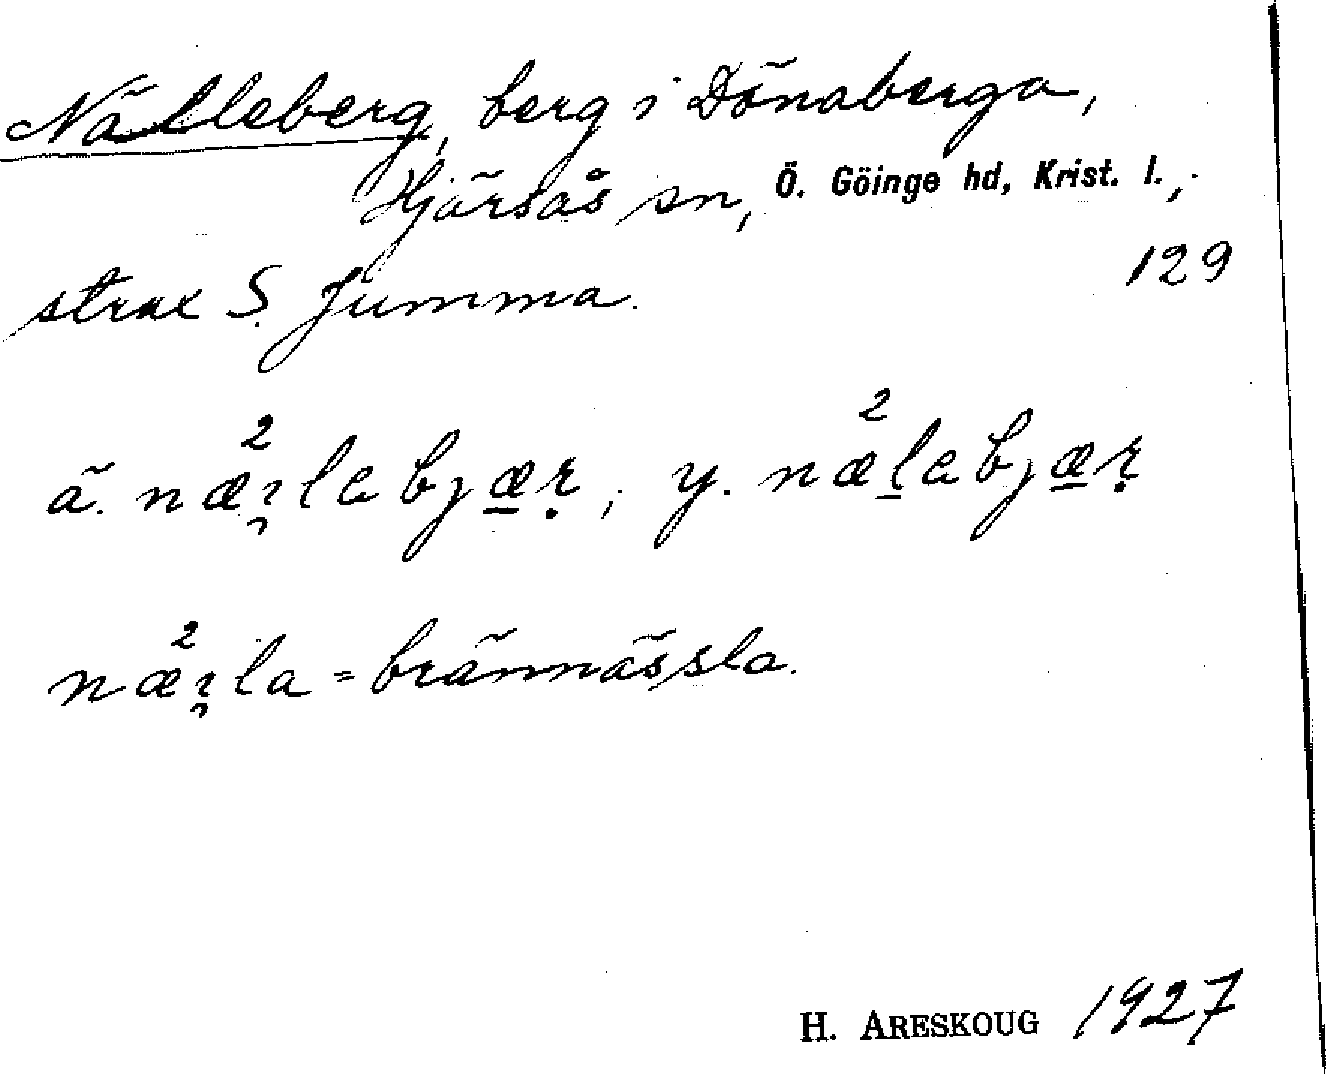 Nälleberg, berg i Dönaberga,
Hjärsås sn, Ö. Göinge hd, Krist. l.,
129
strax S. Jumma.
ä. næ²ɿ̡la bjæ̱ṛ, y. næ²l̲a bjæ̱ṛ
næ²ɿ̡la = brännässla.
H. ARESKOUG 1927